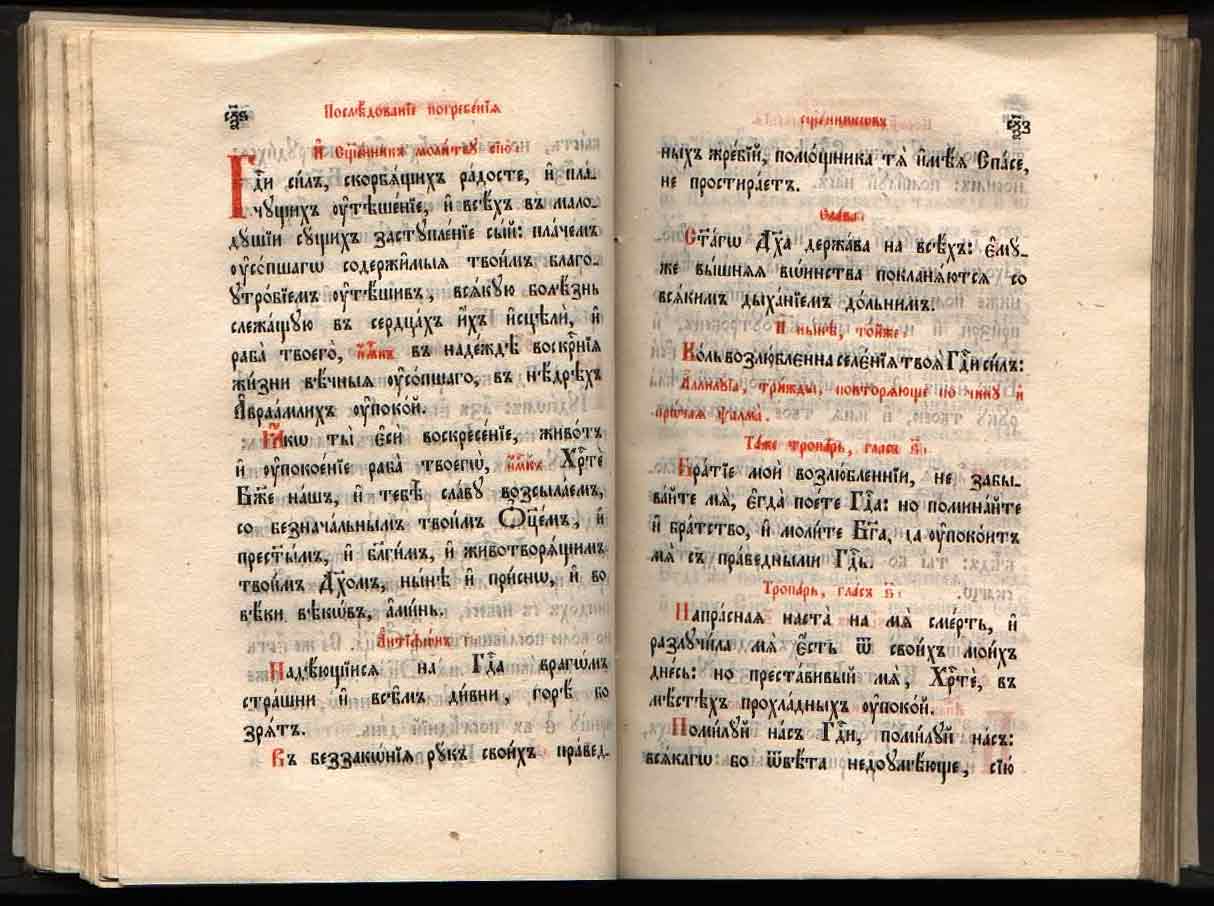 Послѣ́дованїе погребе́нїѧ
И҆ Сщ҃е́нникъ моли́тву сїю̀
Гдⷭ҇и си́лъ, скорбѧ́щихъ ра́досте, и҆ пла́-
чущихъ ᲂу҆тѣше́нїе, и҆ всѣ́хъ въ мало-
дꙋ́шїи сꙋ́щихъ застꙋпле́нїе сы́й: пла́чемъ
ᲂу҆со́пшагѡ содержи̑мыѧ твои́мъ благо-
ꙋтро́бїемъ ᲂу҆тѣ́шивъ, всѧ́кꙋю болѣ́знь
слежа́щꙋю въ сердца́хъ и҆́хъ и҆сцѣлѝ, и҆
раба̀ твоего̀, и҆́м҃къ въ наде́ждѣ воскрⷭ҇нїѧ
жи́зни вѣ́чныѧ ᲂу҆со́пшаго, въ нѣ́дрѣхъ
А҆враа́млихъ ᲂу҆поко́й.
Ꙗ҆́кѡ ты̀ є҆сѝ воскресе́нїе, живо́тъ
и҆ ᲂу҆покое́нїе раба̀ твоегѡ̀, и҆́м҃къ Хрⷭ҇тѐ
Бж҃е на́шъ, и҆ тебѣ̀ сла́вꙋ возсыла́емъ,
со безнача́льнымъ твои́мъ Ѻ҆ц҃е́мъ, и҆
прест҃ы́мъ, и҆ бл҃ги́мъ, и҆ животворѧ́щимъ
твои́мъ Дх҃омъ, ны́нѣ и҆ при́снѡ, и҆ во
вѣ́ки вѣкѡ́въ, а҆ми́нь.
А҆нтїфѡ́нъ
Надѣ́ющїисѧ на Гдⷭ҇а врагѡ́мъ
стра́шни и҆ всѣ́мъ ди́вни, горѣ́ бо
зрѧ́тъ.
Въ беззакѡ́нїѧ рꙋ́къ свои́хъ пра́вед-
сщ҃е́нникѡвъ
ныхъ жре́бїй, помо́щника тѧ̀ и҆мѣ́ѧ Спа́се,
не простира́етъ.
Сла́ва:
Ст҃а́гѡ Дх҃а держа́ва на всѣ́хъ: є҆мꙋ́-
же вы́шнѧѧ вѡ́инства покланѧ́ютсѧ со
всѧ́кимъ дыха́нїемъ до́льнимъ.
И҆ ны́нѣ, то́йже.
Ко́ль возлю́бленна селе́нїѧ твоѧ̀ Гдⷭ҇и си́лъ:
А҆ллилꙋ́їа, три́жды, повторѧ́юще по чи́нꙋ и҆
прѡ́чаѧ ѱалма̀.
Та́же тропа́рь, гла́съ
Бра́тїе моѝ возлю́бленнїи, не забы-
ва́йте мѧ̀, є҆гда̀ пое́те Гдⷭ҇а: но помина́йте
и҆ бра́тство, и҆ моли́те Бг҃а, да ᲂу҆поко́итъ
мѧ̀ съ пра́ведными Гдⷭ҇ь.
Тропа́рь, гла́съ
Напра́сная наста̀ на мѧ̀ сме́рть, и҆
разлꙋчи́ла мѧ̀ є҆́сть ѿ свои́хъ мои́хъ
дне́сь: но преста́вивый мѧ̀, Хрⷭ҇тѐ, въ
мѣ́стѣхъ прохла́дныхъ ᲂу҆поко́й.
Поми́лꙋй на́съ Гдⷭ҇и, поми́лꙋй на́съ:
всѧ́кагѡ бо ѿвѣ́та недоꙋмѣ́юще, сїю̀